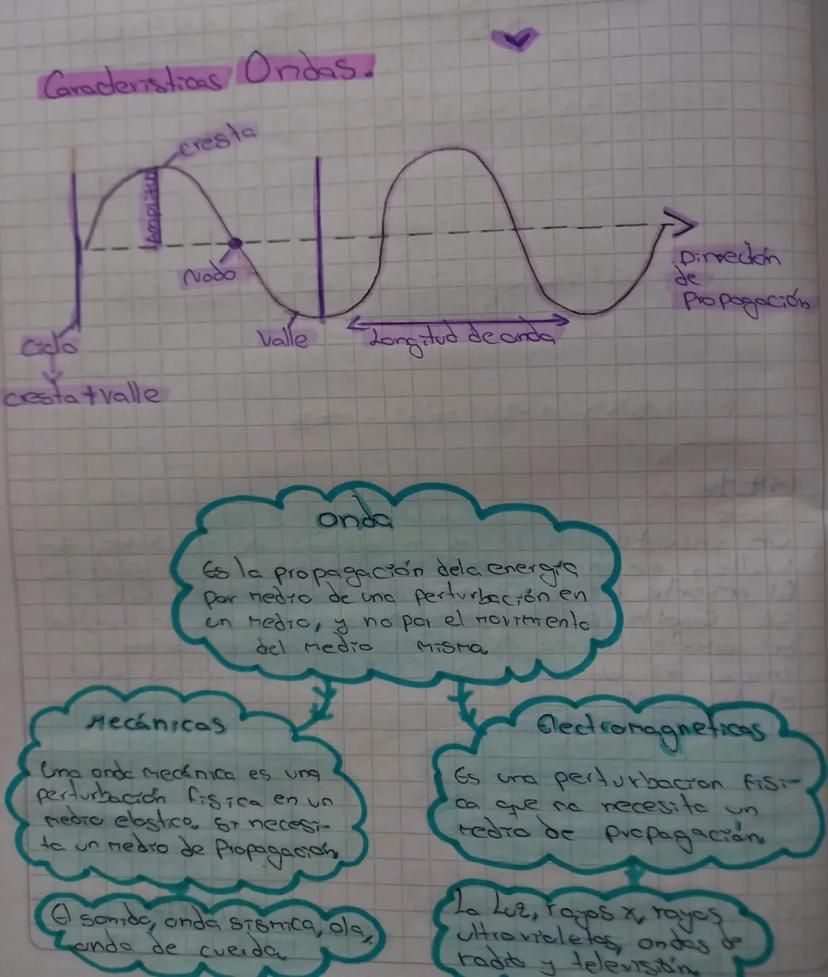 Caracteristicas Ondas.
cresta
Amplitud
Nodo
Dirección
de
Propagación
Ciclo
Valle
Longitud de onda
cresta + valle
Onda
Es la propagación de la energia
por medio de una perturbación en
un medio, y no por el movimiento
del medio misma
Mecánicas
Una onda mecánica es una
perturbación fisica en un
medio elastico, si necesi-
ta un medio de Propagación
El sonido, onda sismica, ola,
onda de cuerda
Electromagneticas
Es una perturbacion fisi-
ca que no necesita un
medio de propagación
La Luz, rayos x, rayos
ultravioletas, ondas de
radio y televisión